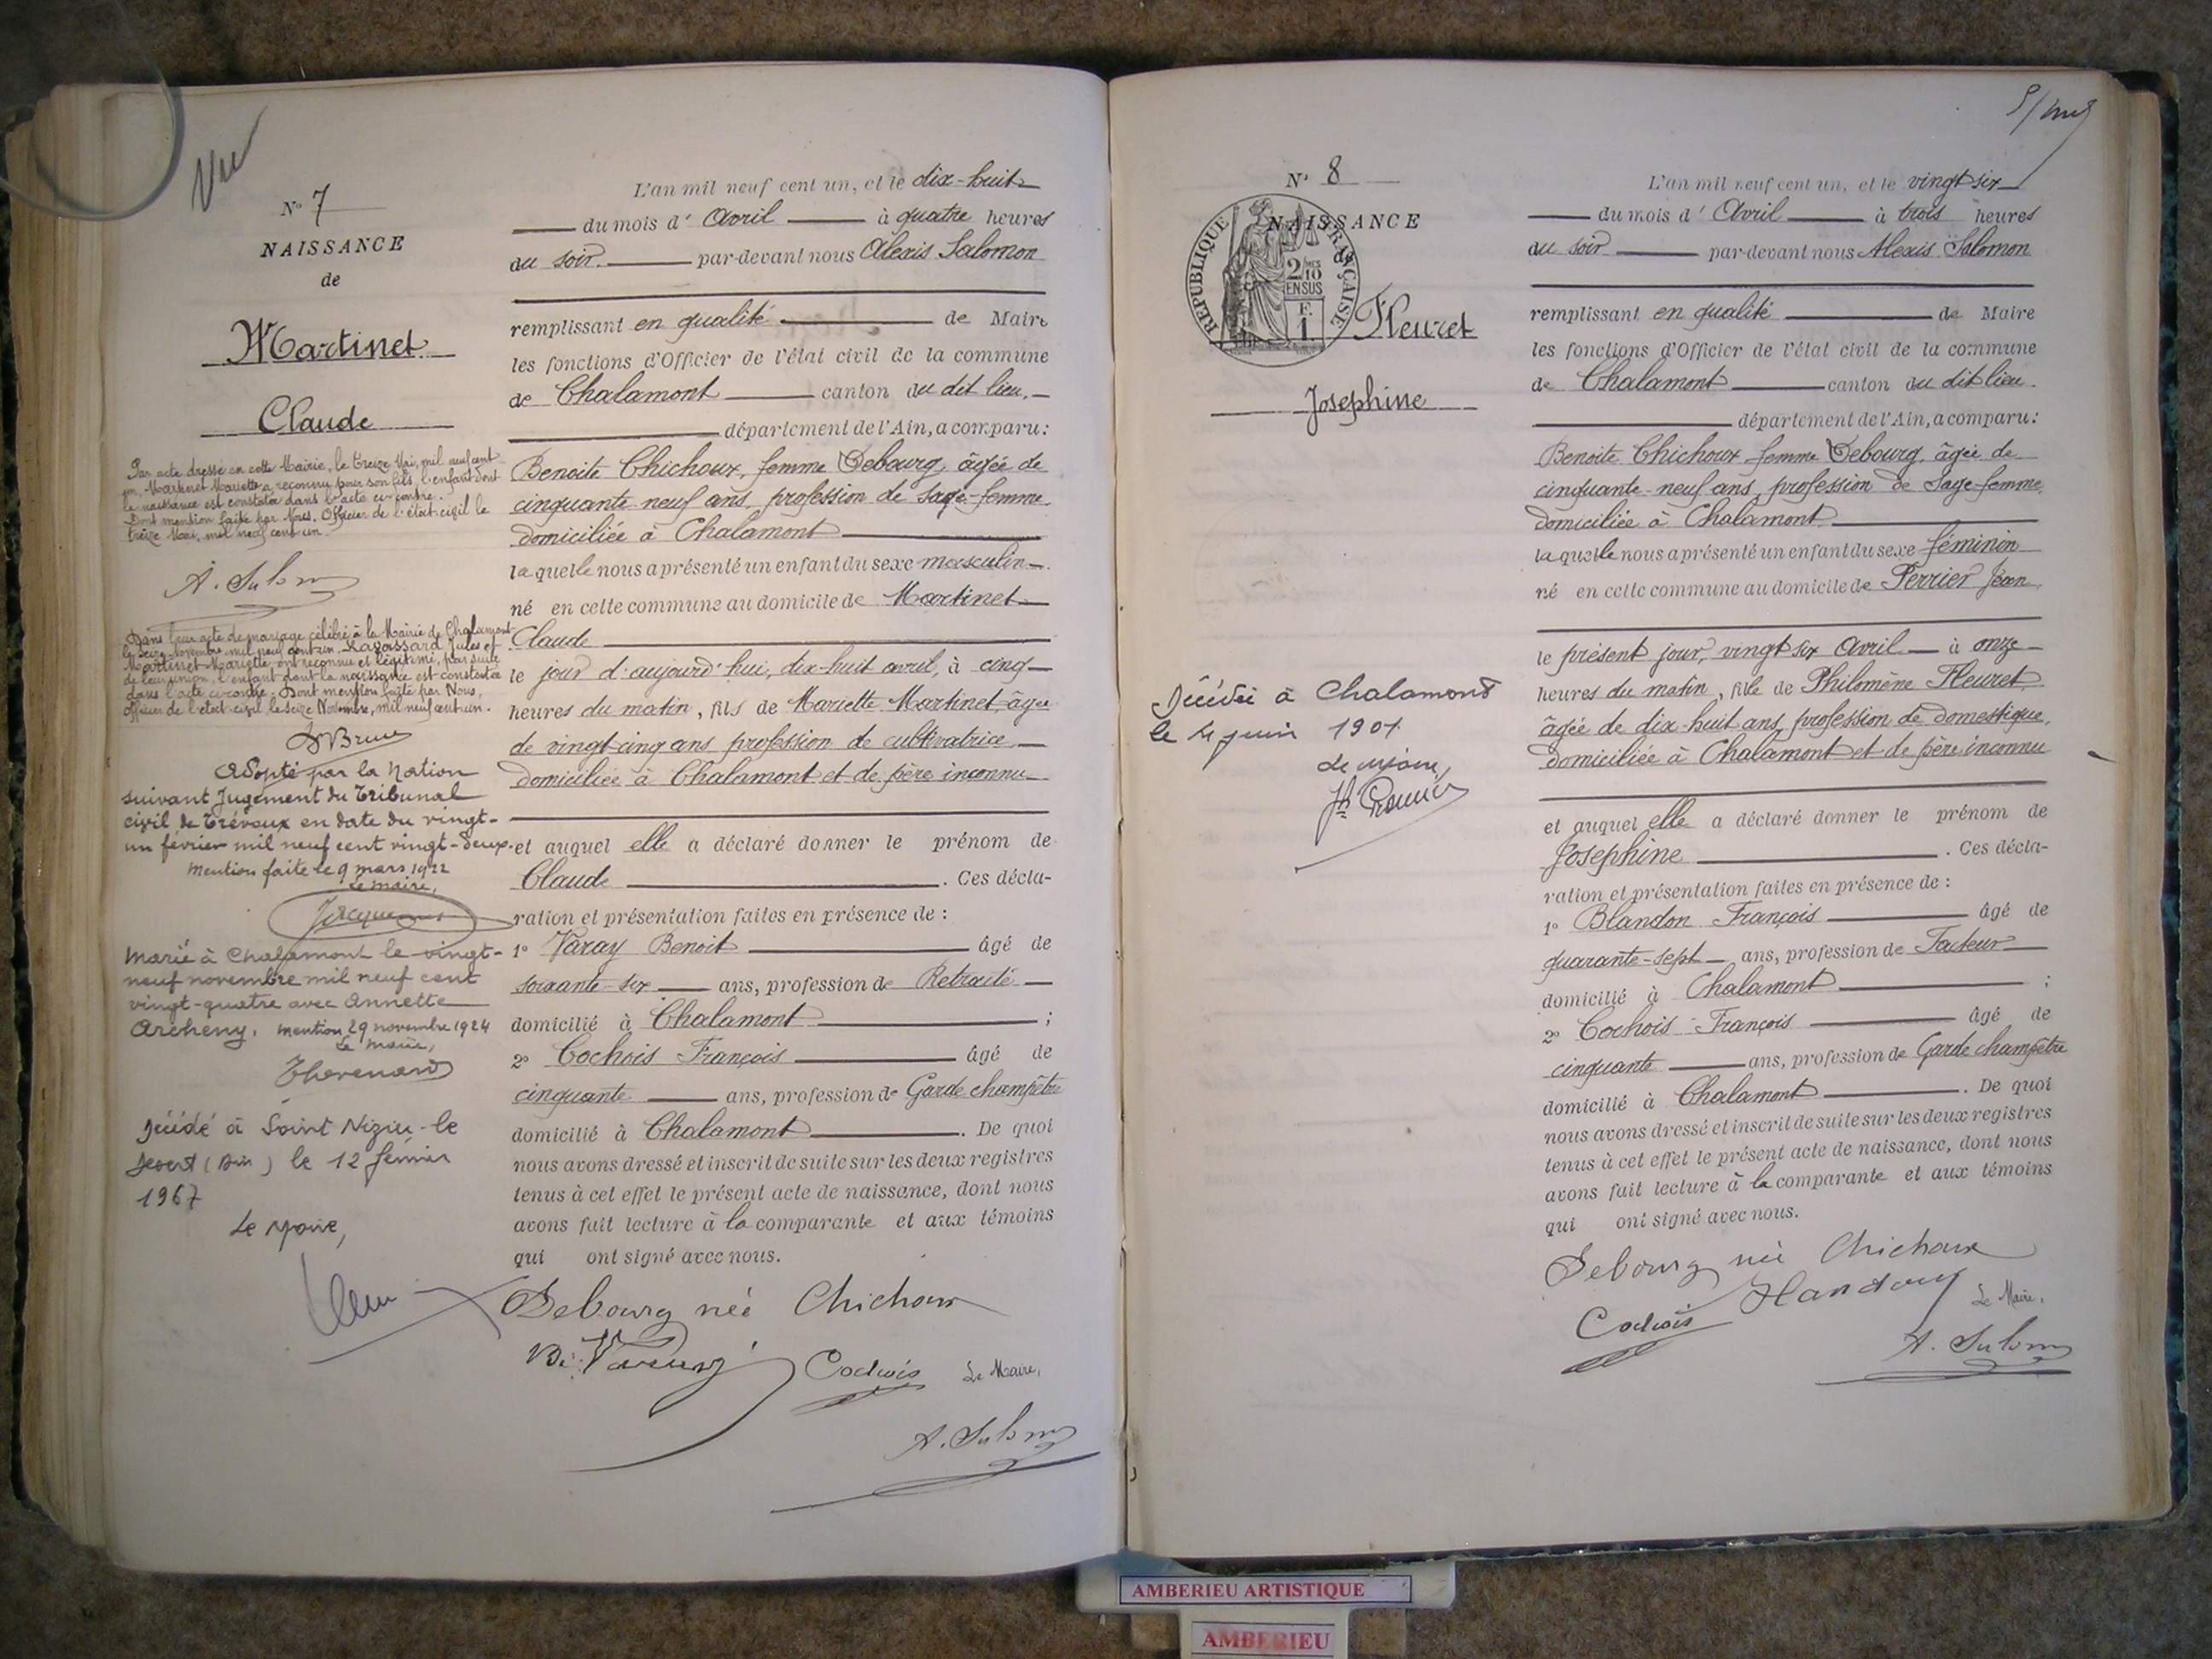 Vu
N° 7
NAISSANCE
de
Martinet
Claude
Par acte dressé en cette Mairie, le treize Mai, mil neuf cent
un, Martinet Mariette a reconnu pour son fils, l'enfant dont
la naissance est constatée dans l'acte ci-contre.
Dont mention faite par Nous, Officier de l'état-civil le
treize Mai, mil neuf cent un.
A. Salomon
Dans leur acte de mariage célébré à la Mairie de Chalamont
le seize Novembre mil neuf cent un, Jules et
Martinet Mariette ont reconnu et légitimé, par suite
de leur union, l'enfant dont la naissance est constatée
dans l'acte ci-contre. Dont mention faite par Nous,
officier de l'état-civil, le seize Novembre, mil neuf cent un.
Adopté par la Nation
suivant Jugement du Tribunal
civil de Trévoux en date du vingt-
un février mil neuf cent vingt-deux.
Mention faite le 9 mars 1922
Le maire,
Marié à Chalamont le vingt-
neuf novembre mil neuf cent
vingt-quatre avec Annette
Archeny. mention 29 novembre 1924
Le maire,
Thevenard
Décédé à Saint Nizier-le
Désert (Ain) le 12 février
1967
Le Maire,
L'an mil neuf cent un, et le dix-huit
du mois d' Avril à quatre heures
du soir par-devant nous Alexis Salomon
remplissant en qualité de Maire
les fonctions d'Officier de l'état civil de la commune
de Chalamont canton du dit lieu.
département de l'Ain, a comparu:
Benoite Chichoux, femme Debourg, âgée de
cinquante-neuf ans, profession de sage-femme
domiciliée à Chalamont
laquelle nous a présenté un enfant du sexe masculin
né en cette commune au domicile de Martinet
Claude
le jour d'aujourd'hui, dix-huit avril, à cinq
heures du matin, fils de Mariette Martinet, âgée
de vingt-cinq ans profession de cultivatrice
domiciliée à Chalamont et de père inconnu
et auquel elle a déclaré donner le prénom de
Claude . Ces décla-
ration et présentation faites en présence de :
1° Varay Benoit âgé de
soixante-six ans, profession de Retraité
domicilié à Chalamont ;
2° Cochois François âgé de
cinquante ans, profession de Garde champêtre
domicilié à Chalamont . De quoi
nous avons dressé et inscrit de suite sur les deux registres
tenus à cet effet le présent acte de naissance, dont nous
avons fait lecture à la comparante et aux témoins
qui ont signé avec nous.
Debourg née Chichoux
Cochois Le Maire,
A. Salomon
N° 8
NAISSANCE
de
REPUBLIQUE FRANÇAISE
2/10
EN SUS
F.
1
Fleuret
Josephine
Décédée à Chalamont
le 4 juin 1901
Le Maire,
L'an mil neuf cent un, et le vingt six
du mois d' Avril à trois heures
du soir par-devant nous Alexis Salomon
remplissant en qualité de Maire
les fonctions d'Officier de l'état civil de la commune
de Chalamont canton du dit lieu.
département de l'Ain, a comparu:
Benoite Chichoux femme Debourg, âgée de
cinquante-neuf ans, profession de sage-femme,
domiciliée à Chalamont
laquelle nous a présenté un enfant du sexe féminin
né en cette commune au domicile de Perrier Jean
le présent jour, vingt six Avril à onze
heures du matin, fille de Philomène Fleuret,
âgée de dix-huit ans, profession de domestique,
domiciliée à Chalamont et de père inconnu
et auquel elle a déclaré donner le prénom de
Josephine . Ces décla-
ration et présentation faites en présence de :
1° Blandon François âgé de
quarante-sept ans, profession de Facteur
domicilié à Chalamont ;
2° Cochois François âgé de
cinquante ans, profession de Garde champêtre
domicilié à Chalamont . De quoi
nous avons dressé et inscrit de suite sur les deux registres
tenus à cet effet le présent acte de naissance, dont nous
avons fait lecture à la comparante et aux témoins
qui ont signé avec nous.
Debourg née Chichoux
Cochois Le Maire,
A. Salomon
AMBERIEU ARTISTIQUE
AMBERIEU